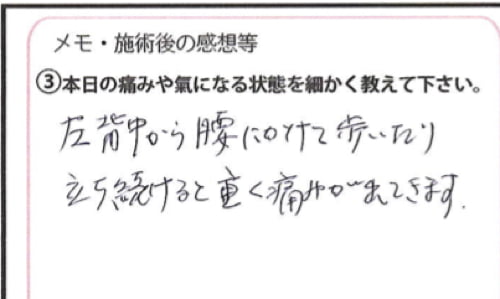 メモ・施術後の感想等
③本日の痛みや氣になる状態を細かく教えて下さい。
左背中から腰にかけて歩いたり
立ち続けると重く痛みが出てきます.